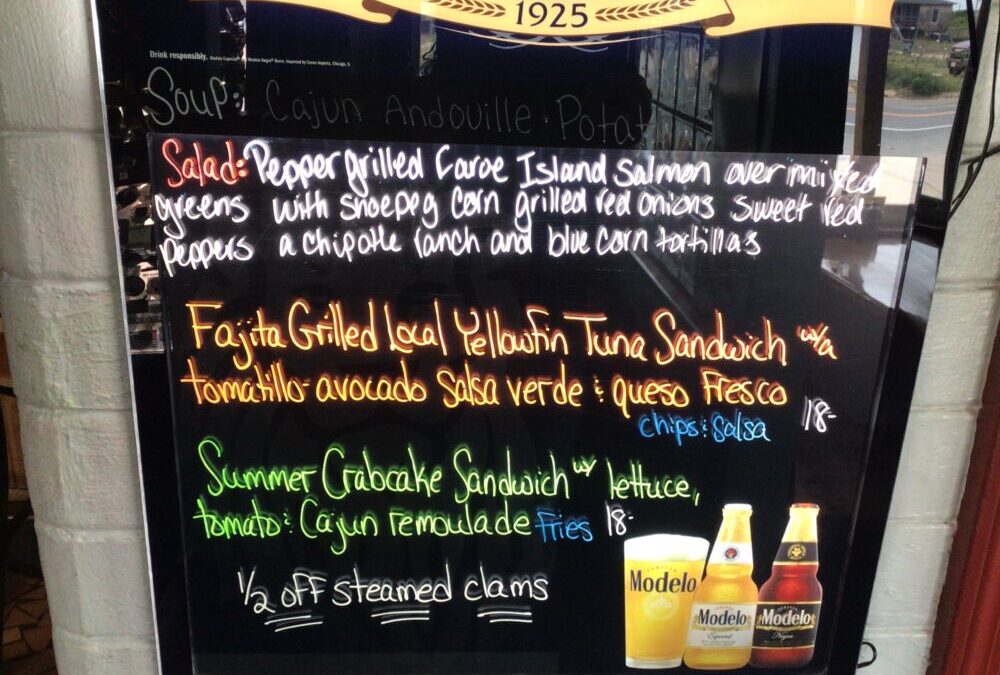 1925
Drink responsibly.
Soup: Cajun Andouille Potat
Salad: Pepper grilled Faroe Island Salmon over mixed
greens with shoepeg corn grilled red onions sweet red
peppers a chipotle ranch and blue corn tortillas
Fajita Grilled Local Yellowfin Tuna Sandwich w/a
tomatillo-avocado salsa verde & queso fresco
chips & salsa 18-
Summer Crabcake Sandwich w/ lettuce,
tomato & Cajun remoulade Fries 18-
1/2 off steamed clams
Modelo
Modelo
Especial
Modelo
Negra